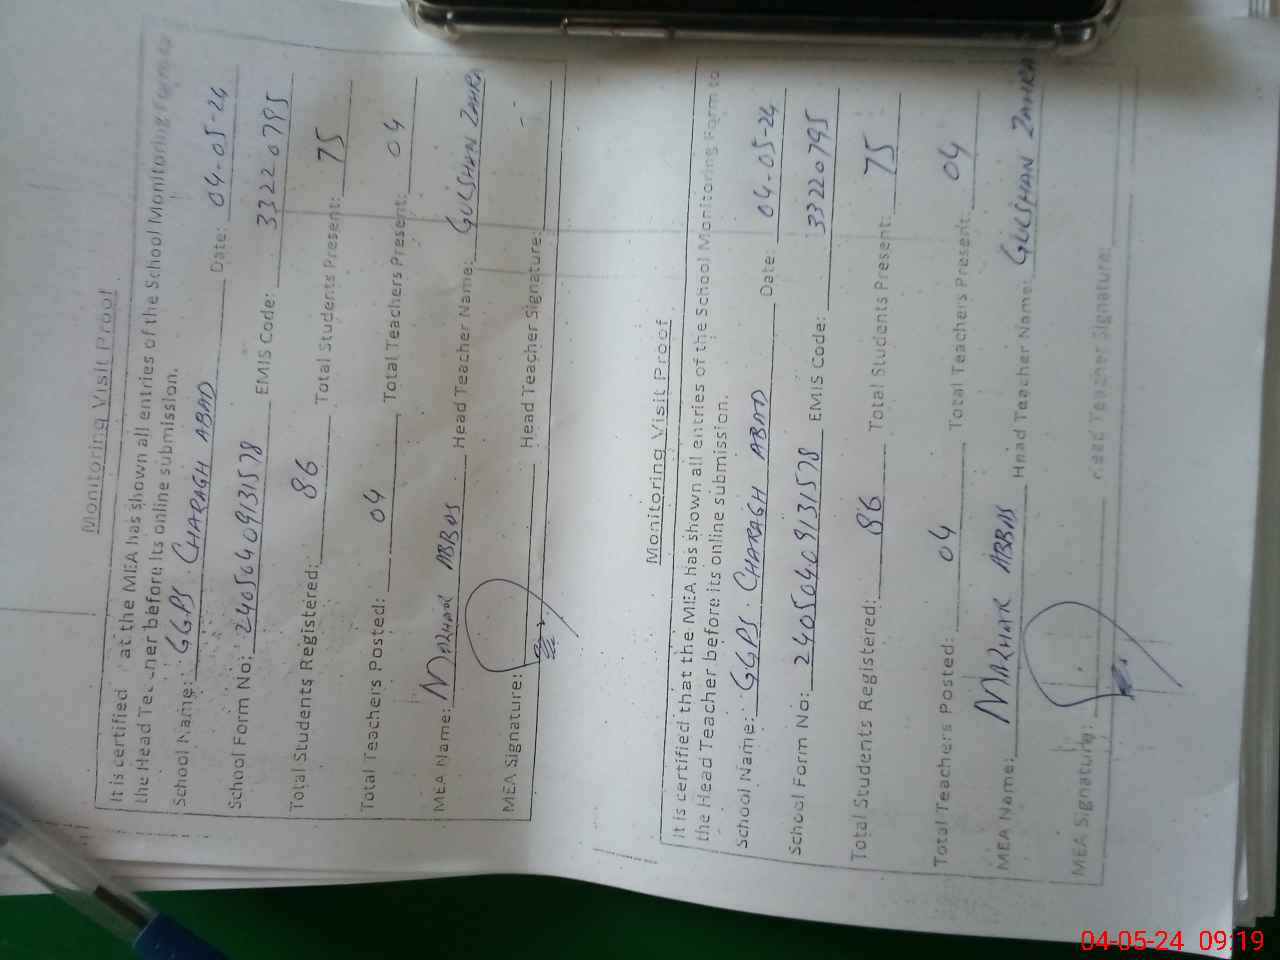 Monitoring Visit Proof
It is certified at the MEA has shown all entries of the School Monitoring Form to
the Head Teacher before its online submission.
School Name: GGPS CHARAGH ABAD Date: 04-05-24
School Form No: 24050409131578 EMIS Code: 33220795
Total Students Registered: 86 Total Students Present: 75
Total Teachers Posted: 04 Total Teachers Present: 04
MEA Name: MAZHAR ABBAS Head Teacher Name: GULSHAN ZAHRA
MEA Signature: Head Teacher Signature:
Monitoring Visit Proof
It is certified that the MEA has shown all entries of the School Monitoring Form to
the Head Teacher before its online submission.
School Name: GGPS CHARAGH ABAD Date: 04-05-24
School Form No: 24050409131578 EMIS Code: 33220795
Total Students Registered: 86 Total Students Present: 75
Total Teachers Posted: 04 Total Teachers Present: 04
MEA Name: MAZHAR ABBAS Head Teacher Name: GULSHAN ZAHRA
MEA Signature: Head Teacher Signature:
04-05-24 09:19